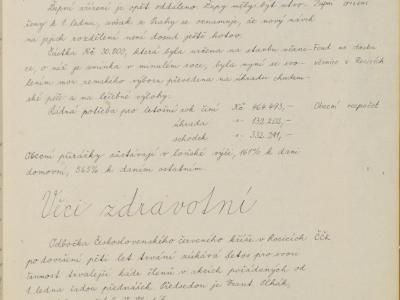 Župní zřízení je opět oddáleno. Župy měly být utvo- Župní zřízení
řeny k 1. lednu, avšak z Prahy se oznamuje, že nový návrh
na jejich rozdělení není dosud ještě hotov.
Částka Kč 30.000, která byla určena na stavbu
ce, o níž je zmínka v minulém roce, byla nyní se svo- věrnice v Rosicích
lením mor. zemského výboru převedena na úhradu chudin-
ské péče a na léčebné výlohy.
Řádná potřeba pro letošní rok činí Kč 464.493,- Obecní rozpočet
úhrada "- 132.252,-
schodek "- 332.241,-
Obecní přirážky zůstávají v loňské výši, 161% k dani
domovní, 363% k daním ostatním.
Věci zdravotní
Odbočka Československého červeného kříže v Rosicích ČČK
po dovršení pěti let trvání získává dotos pro svou
činnost trvalejší káde členů v akcích pořádaných od
1. ledna řadou přednášek. Předsedou je Frant.